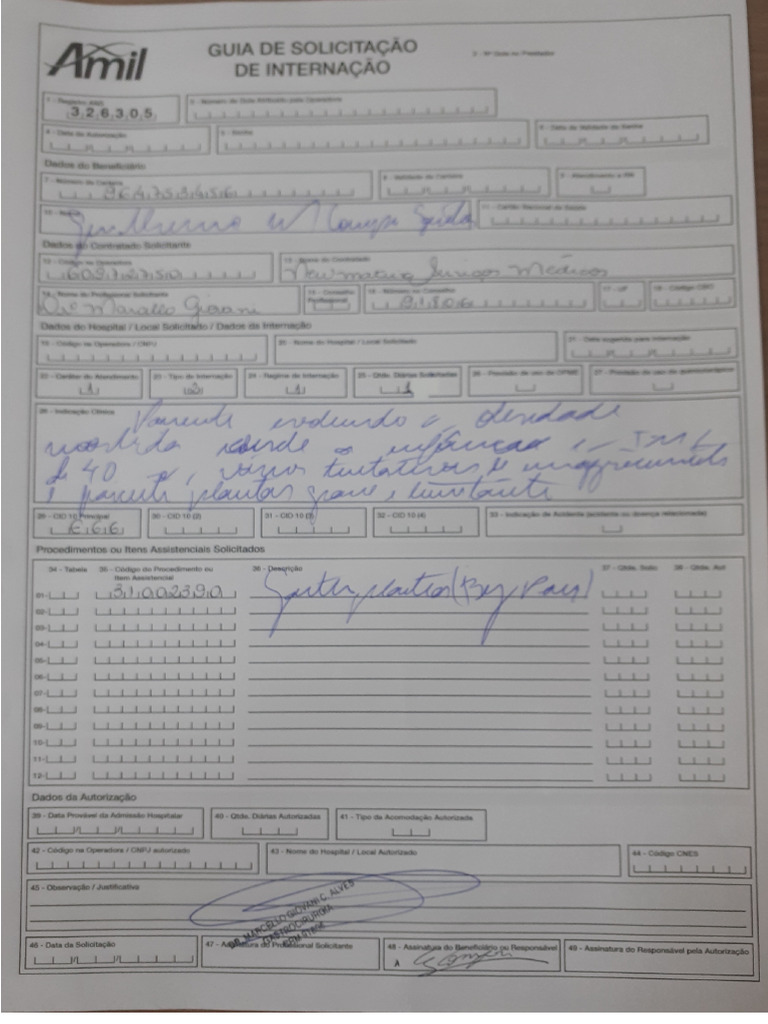 Amil
GUIA DE SOLICITAÇÃO
DE INTERNAÇÃO
2 - Nº Guia no Prestador
1 - Registro ANS
3 - Número da Guia Atribuído pela Operadora
326305
4 - Data da Autorização
5 - Senha
6 - Data de Validade da Senha
Dados do Beneficiário
7 - Número da Carteira
8 - Validade da Carteira
9 - Atendimento a RN
10 - Nome
11 - Cartão Nacional de Saúde
Dados do Contratado Solicitante
12 - Código na Operadora
13 - Nome do Contratado
Médicos
14 - Nome do Profissional Solicitante
15 - Conselho Profissional
16 - Número no Conselho
17 - UF
18 - Código CBO
Giovani
91806
Dados do Hospital / Local Solicitado / Dados da Internação
19 - Código na Operadora / CNPJ
20 - Nome do Hospital / Local Solicitado
21 - Data sugerida para Internação
22 - Caráter do Atendimento
23 - Tipo de Internação
24 - Regime de Internação
25 - Qtde. Diárias Solicitadas
26 - Previsão de uso de OPME
27 - Previsão de uso de quimioterápico
28 - Indicação Clínica
Paciente obesidade
infância IMC
de 40 tentativas de
29 - CID 10 Principal
30 - CID 10 (2)
31 - CID 10 (3)
32 - CID 10 (4)
33 - Indicação de Acidente (acidente ou doença relacionada)
E66
Procedimentos ou Itens Assistenciais Solicitados
34 - Tabela
35 - Código do Procedimento ou
Item Assistencial
36 - Descrição
37 - Qtde. Solic
38 - Qtde. Aut
01- 31002390 Gastroplastia (By Pass)
02-
03-
04-
05-
06-
07-
08-
09-
10-
11-
12-
Dados da Autorização
39 - Data Provável da Admissão Hospitalar
40 - Qtde. Diárias Autorizadas
41 - Tipo da Acomodação Autorizada
42 - Código na Operadora / CNPJ autorizado
43 - Nome do Hospital / Local Autorizado
44 - Código CNES
45 - Observação / Justificativa
DR. MARCELLO GIOVANI C. ALVES
GASTROCIRURGIA
CRM 91806
46 - Data da Solicitação
47 - Assinatura do Profissional Solicitante
48 - Assinatura do Beneficiário ou Responsável
49 - Assinatura do Responsável pela Autorização
A